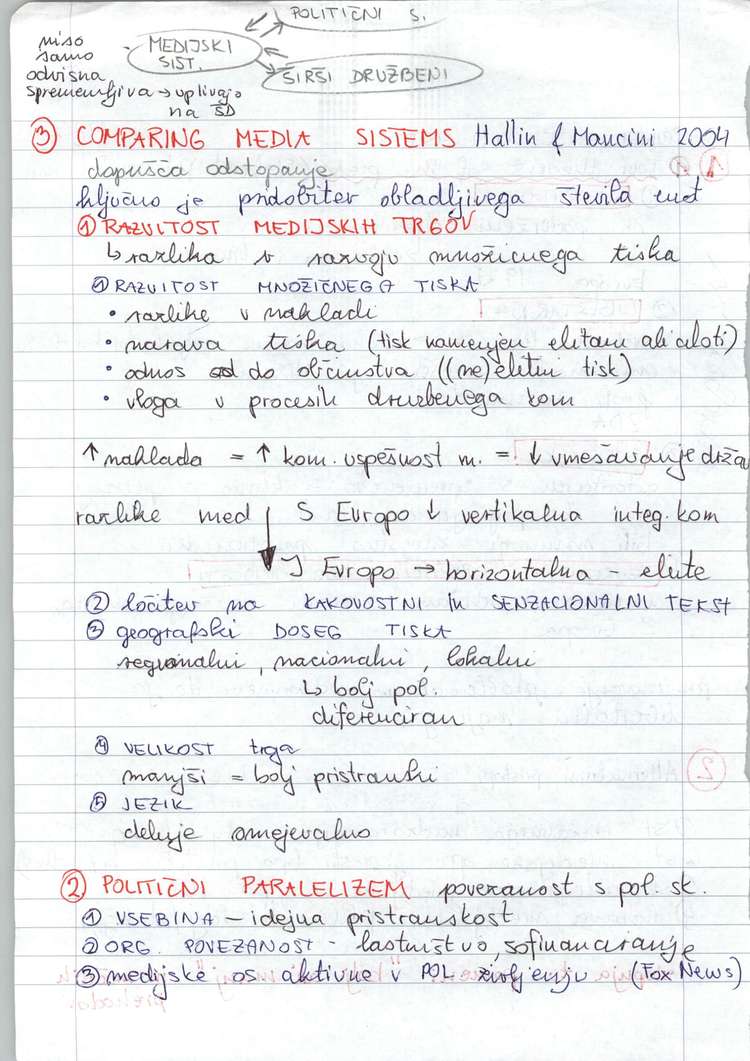 POLITIČNI S.
niso
samo
odvisna
spremenljiva → vplivajo
na ŠD
MEDIJSKI
SIST.
ŠIRŠI DRUŽBENI
③ COMPARING MEDIA SISTEMS Hallin & Mancini 2004
dopušča odstopanje
ključno je pridobitev obladljivega števila enot
① RAZVITOST MEDIJSKIH TRGOV
↳ razlika v razvoju množičnega tiska
① RAZVITOST MNOŽIČNEGA TISKA
• razlike v nakladi
• narava tiska (tisk namenjen elitam ali celoti)
• odnos do občinstva ((ne)elitni tisk)
• vloga v procesih družbenega kom
↑ naklada = ↑ kom. uspešnost m. = ↓ vmešavanje drža
razlike med S Evropo ↓ vertikalna integ. kom
J Evropo → horizontalna - elite
② ločitev na KAKOVOSTNI in SENZACIONALNI TEKST
③ geografski DOSEG TISKA
regionalni, nacionalni, lokalni
↳ bolj pol.
diferenciran
④ VELIKOST trga
manjši = bolj pristranski
⑤ JEZIK
deluje omejevalno
② POLITIČNI PARALELIZEM povezanost s pol. sk.
① VSEBINA - idejna pristranskost
② ORG. POVEZANOST - lastništvo, sofinanciranje
③ medijske os aktivne v POL življenju (Fox News)